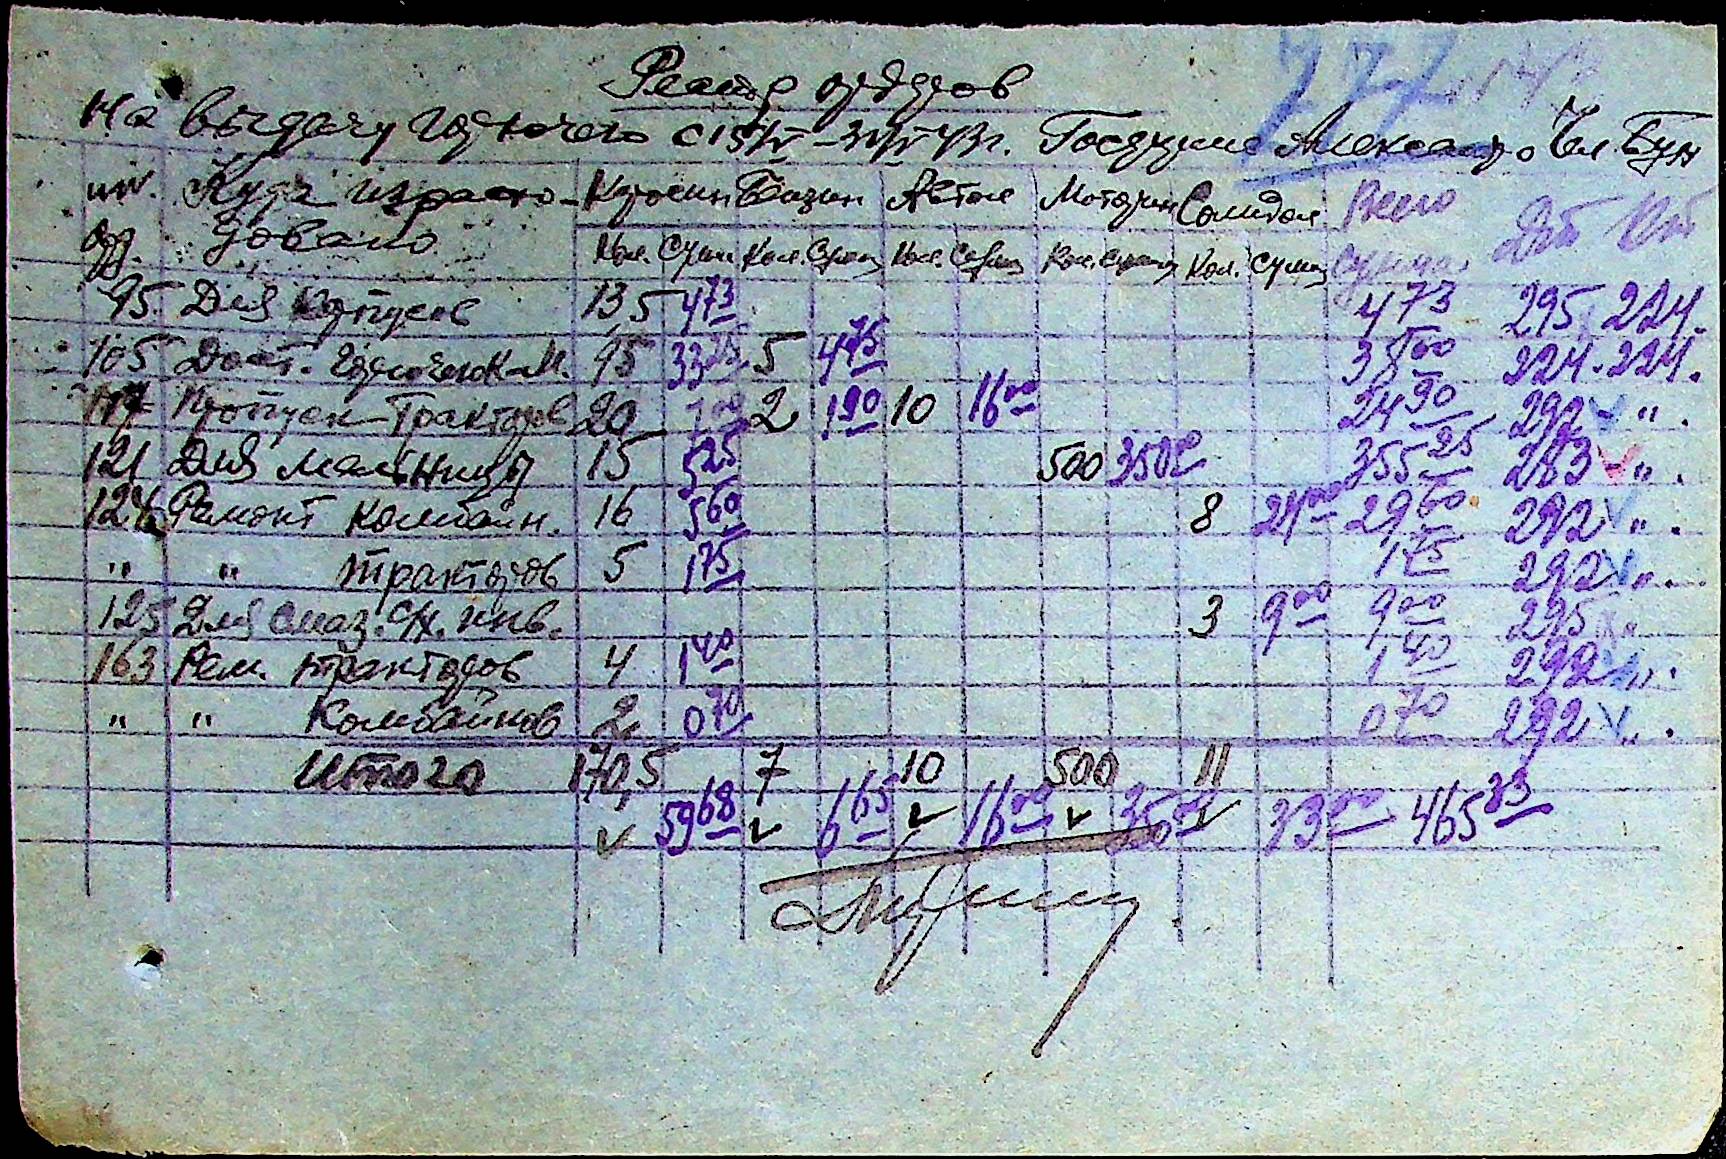 Реестр ордеров
777
На выдачу горючего с 15/IV – 30/IV 43 г. Госдушие Александро Чел. Бун
NN Куда израсхо- Керосин Бензин Автол Моторин Солидол Всего Дт Кт
орд. довано Кол. Сумм Кол. Сумм Кол. Сумм Кол. Сумм Кол. Сумм сумма
95 Для корпусов 13,5 4 73 4 73 295 224.
105 Дост. горючего к-м. 95 33 25 5 4 75 38 00 224. 224.
117 Пропуск Тракторов 20 7 00 2 1 90 10 16 00 24 90 292 " .
121 Для мельницы 15 5 25 500 350 355 25 283 " .
124 Ремонт комбайн. 16 5 60 8 24 00 29 60 292 " .
" " тракторов 5 1 75 1 75 292 " .
125 Для смаз. с/х. инв. 3 9 00 9 00 295 "
163 Рем. тракторов 4 1 40 1 40 292 " .
" " Комбайнов 2 0 70 0 70 292 " .
Итого 170,5 7 10 500 11
59 68 6 65 16 00 350 00 33 00 465 33